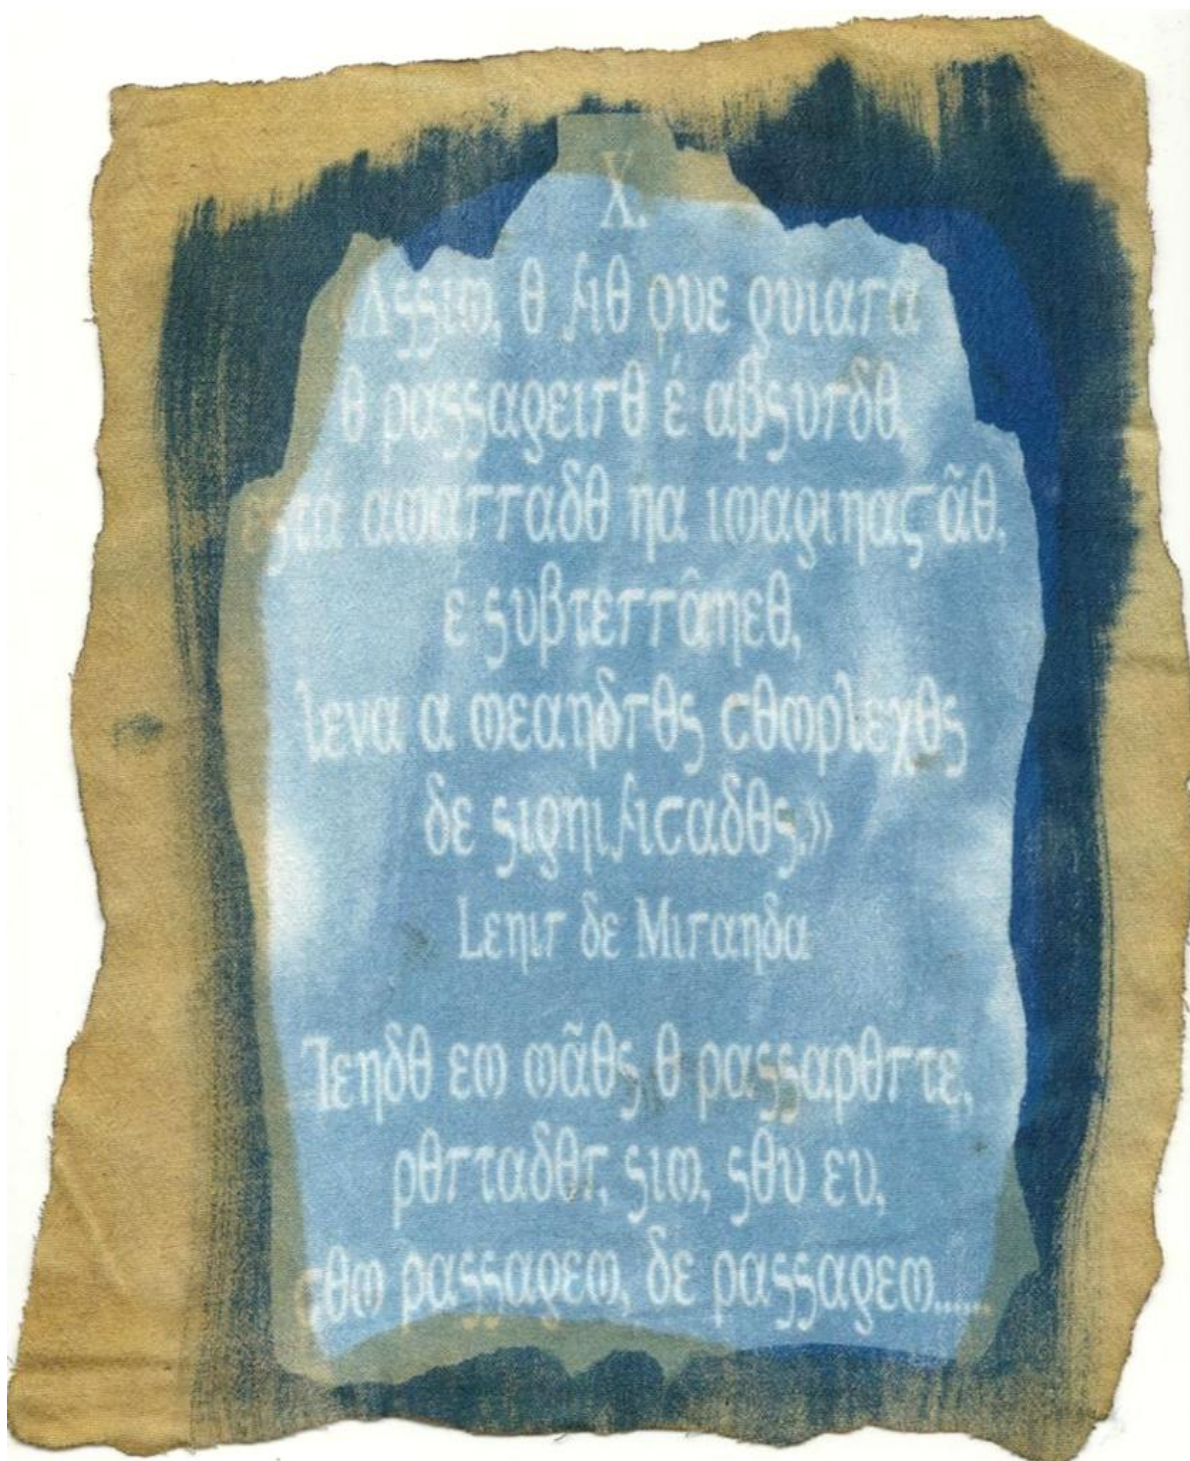 X.
«Assim, o fio que guiará
o passageiro é absurdo,
está amarrado na imaginação,
e subterrâneo,
leva a meandros complexos
de significados.»
Lenir de Miranda
Tendo em mãos o passaporte,
portador, sim, sou eu,
com passagem, de passagem......